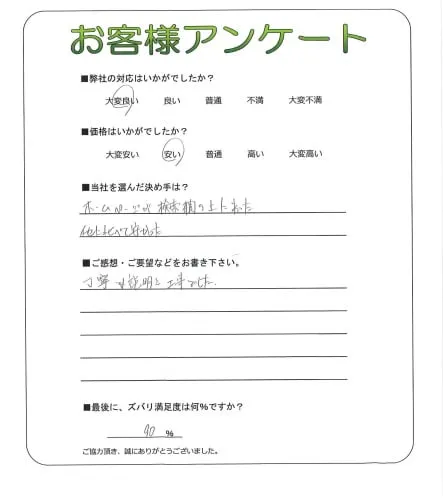 お客様アンケート
■弊社の対応はいかがでしたか？
大変良い 良い 普通 不満 大変不満
■価格はいかがでしたか？
大変安い 安い 普通 高い 大変高い
■当社を選んだ決め手は？
ホームページが検索欄の上にあった
他と比べて安かった
■ご感想・ご要望などをお書き下さい。
丁寧な説明と工事でした.
■最後に、ズバリ満足度は何%ですか？
90 %
ご協力頂き、誠にありがとうございました。